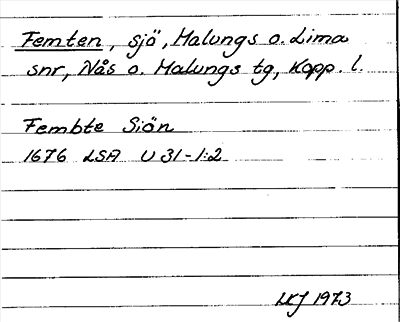 Femten, sjö, Malungs o. Lima
snr, Nås o. Malungs tg, Kopp. l.
Fembte Siön
1676 LSA U 31-1:2
LKJ 1973